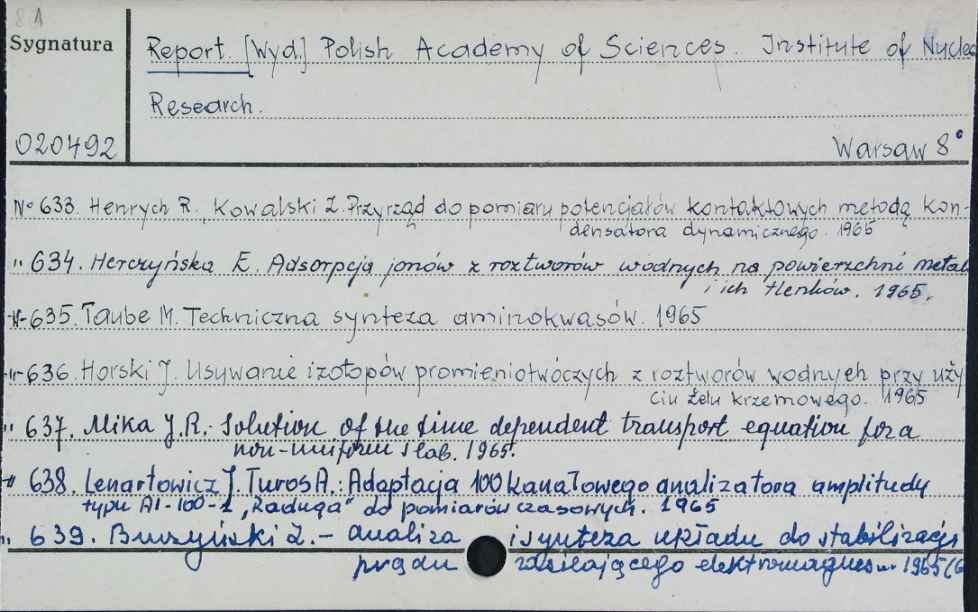 81
Sygnatura
Report. [Wyd.] Polish Academy of Sciences. Institute of Nuclea
Research.
020492
Warsaw 8°
№ 633. Henrych R., Kowalski Z. Przyrząd do pomiaru potencjałów kontaktowych metodą kon-
densatora dynamicznego. 1965
" 634. Herczyńska E. Adsorpcja jonów z roztworów wodnych na powierzchni metali
i ich tlenków. 1965.
"-635. Taube M. Techniczna synteza aminokwasów. 1965
"-636. Horski J. Usywanie izotopów promieniotwóczych z roztworów wodnych przy uży
ciu żelu krzemowego. 1965
" 637. Mika J.R.- Solution of the time dependent transport equation for a
non-uniform slab. 1965.
" 638. Lenartowicz J. Turos A.: Adaptacja 100 kanałowego analizatora amplitudy
typu AI-100-1 „Raduga" do pomiarów czasowych. 1965
" 639. Buczyński Z. - analiza i synteza układu do stabilizacji
prądu zasilającego 1965